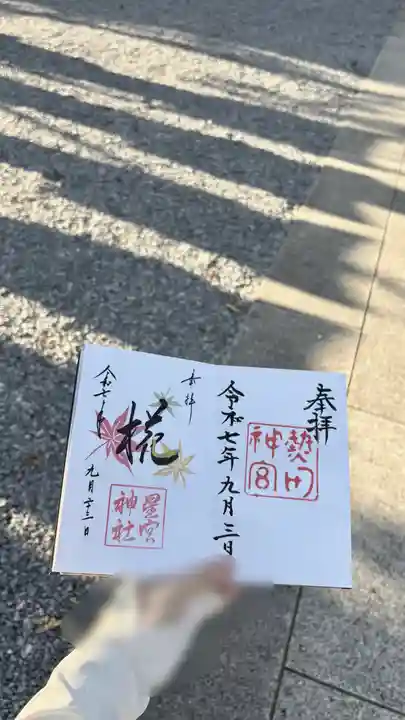 奉拝
熱田
神宮
令和七年九月三日
奉拝
椛
星宮
神社
令和七年
九月二十三日